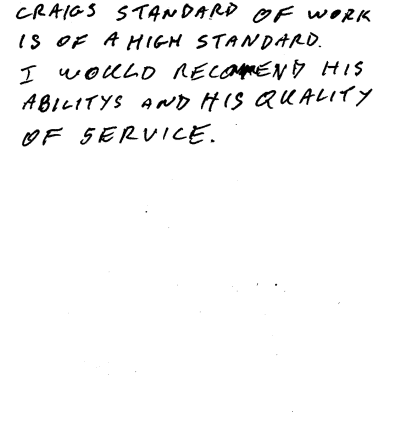 CRAIGS STANDARD OF WORK
IS OF A HIGH STANDARD.
I WOULD RECOMMEND HIS
ABILITYS AND HIS QUALITY
OF SERVICE.